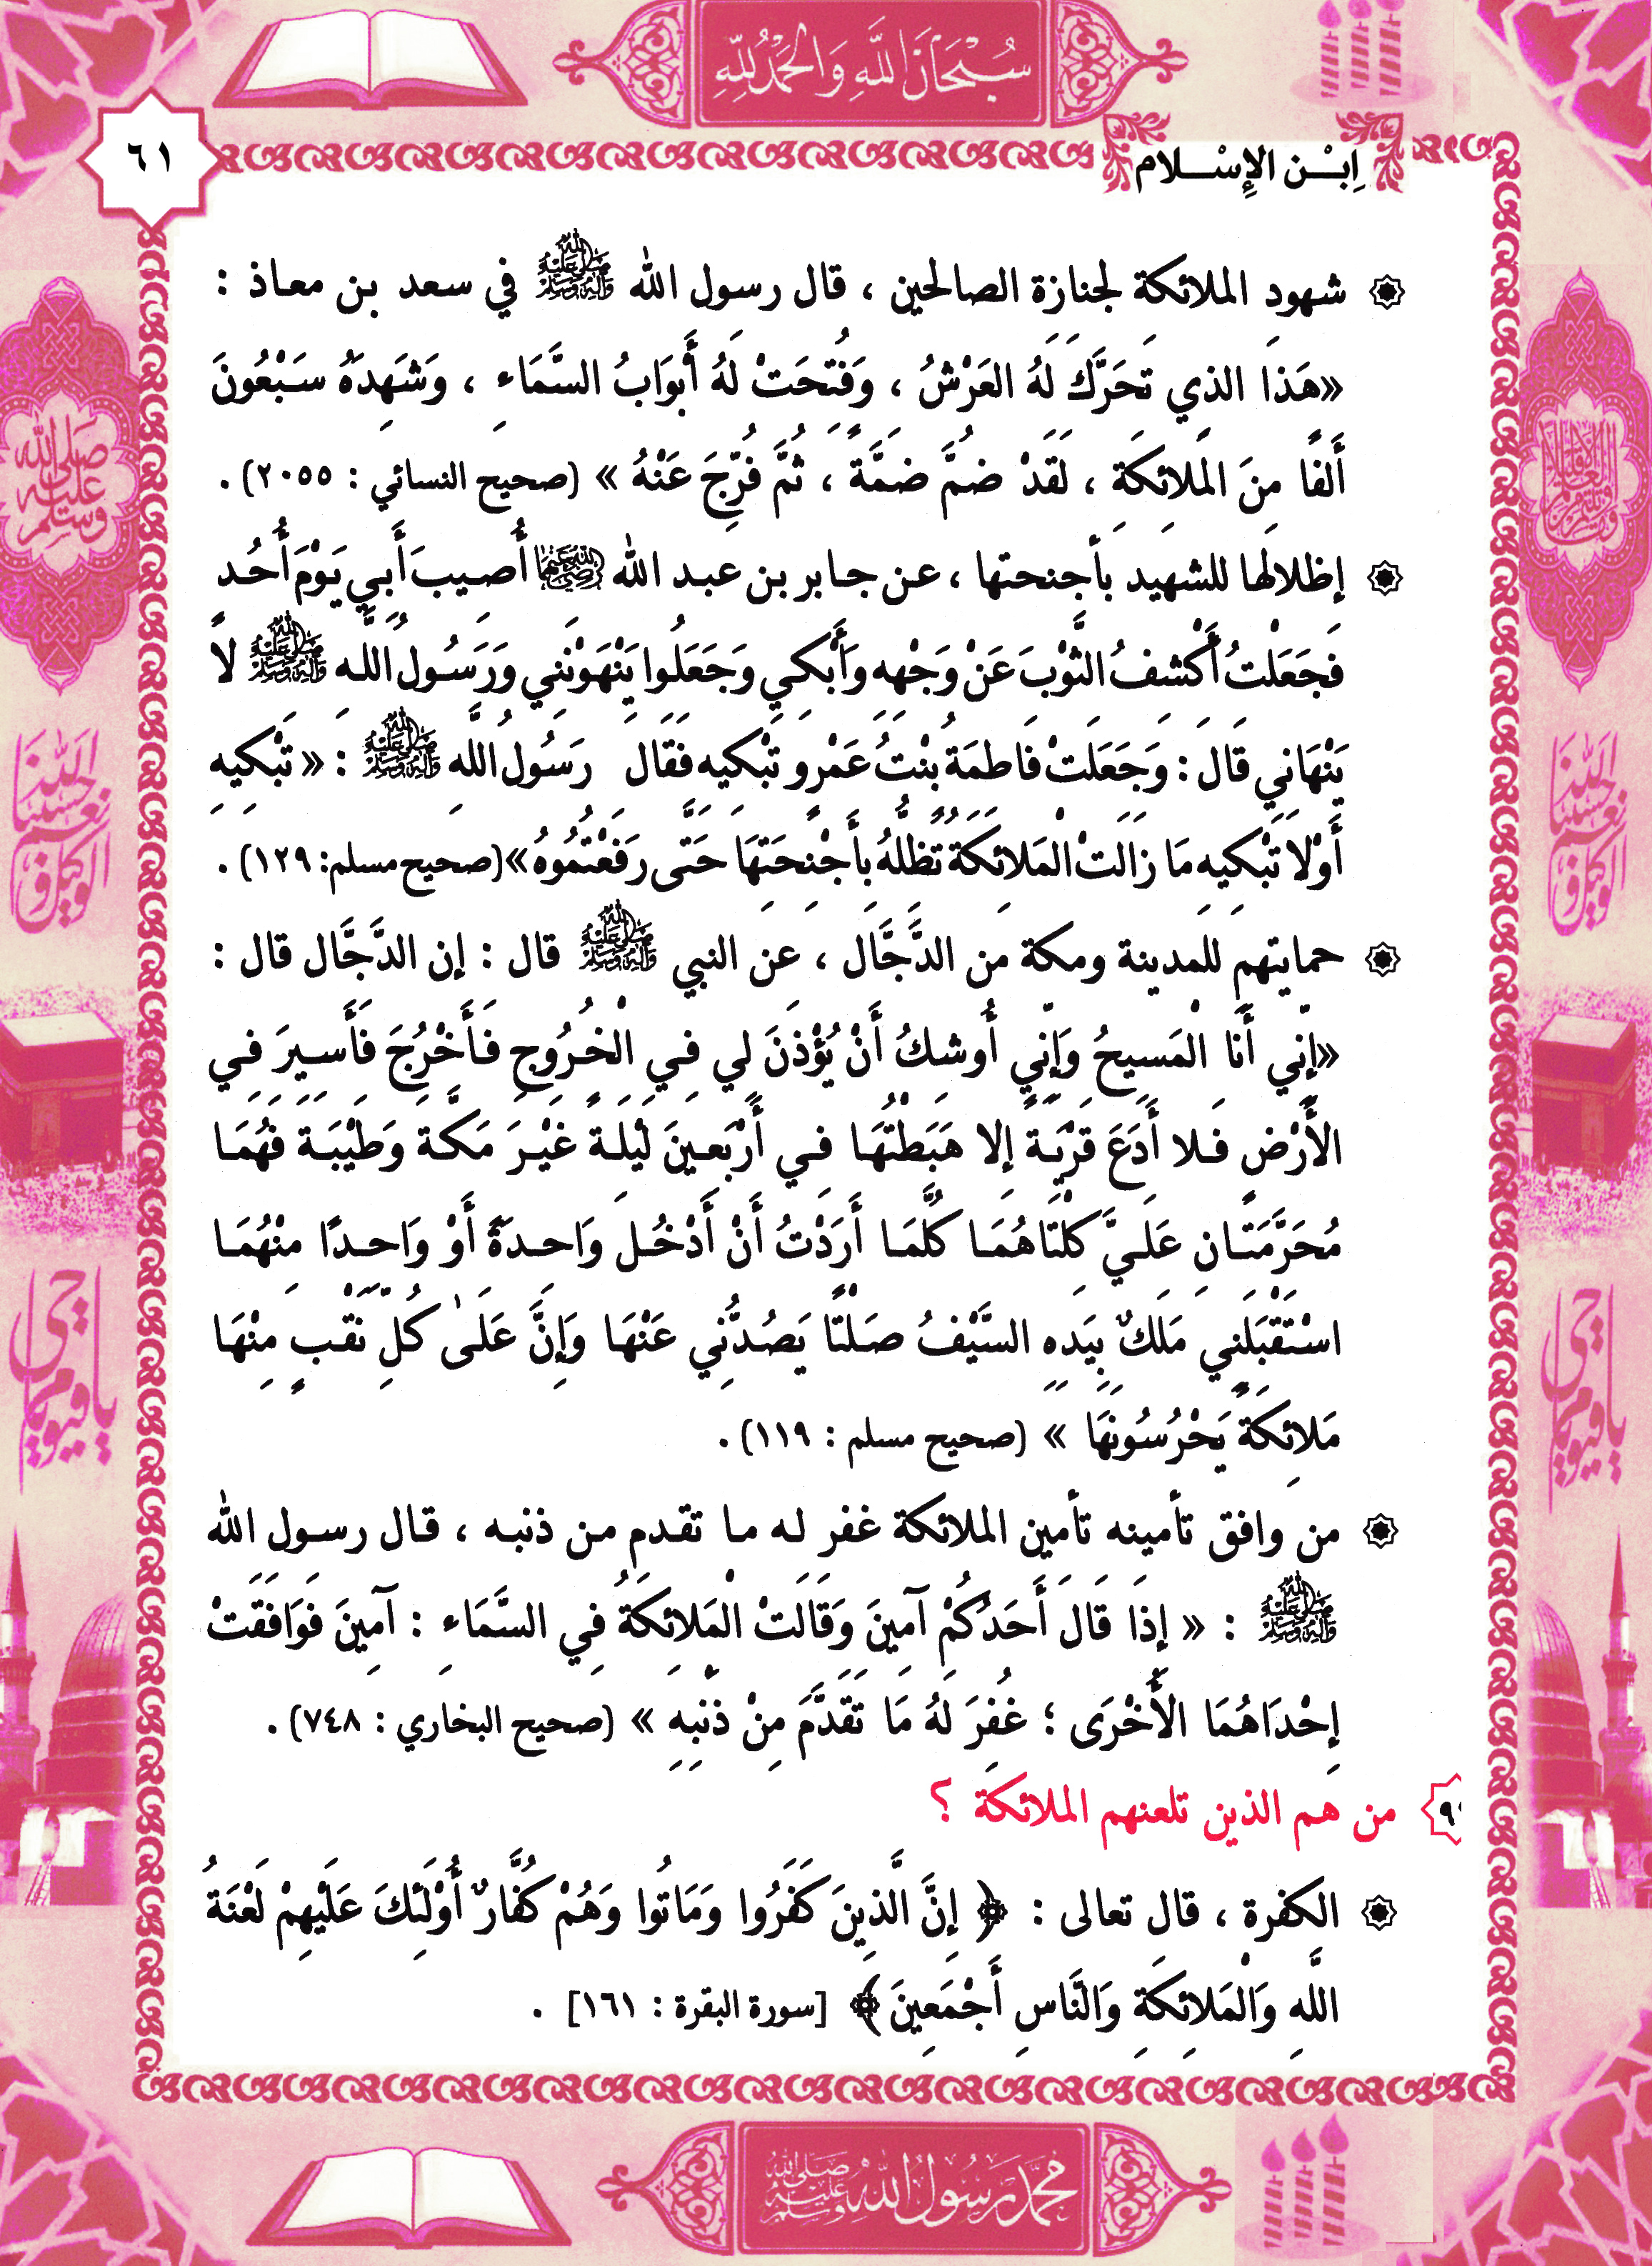 سُبْحَانَ اللَّهِ وَالْحَمْدُ لِلَّهِ
٦١
اِبْن الإِسْلام
شهود الملائكة لجنازة الصالحين ، قال رسول الله ﷺ في سعد بن معاذ :
«هَذا الذِي تَحَرَّكَ لَهُ العَرْشُ ، وَفُتِحَتْ لَهُ أَبوَابُ السَّمَاءِ ، وَشَهِدَهُ سَبْعُونَ
أَلفًا مِنَ الْمَلائِكَةِ ، لَقَدْ ضُمَّ ضَمَّةً ، ثُمَّ فُرِّجَ عَنْهُ » (صحيح النسائي : ٢٠٥٥) .
إظلالها للشهيد بأجنحتها ، عن جابر بن عبد الله رضي الله عنهما أُصِيبَ أَبِي يَوْمَ أُحُدٍ
فَجَعَلْتُ أَكْشِفُ الثَّوْبَ عَنْ وَجْهِهِ وَأَبْكِي وَجَعَلُوا يَنْهَوْنَنِي وَرَسُولُ اللَّهِ ﷺ لاَ
يَنْهَانِي قَالَ : وَجَعَلَتْ فَاطِمَةُ بِنْتُ عَمْرٍو تَبْكِيهِ فَقَالَ رَسُولُ اللَّهِ ﷺ : « تَبْكِيهِ
أَوْ لاَ تَبْكِيهِ مَا زَالَتْ الْمَلائِكَةُ تُظِلُّهُ بِأَجْنِحَتِهَا حَتَّى رَفَعْتُمُوهُ»(صحيح مسلم: ١٢٩) .
حمايتهم للمدينة ومكة من الدَّجَّال ، عن النبي ﷺ قال : إن الدَّجَّال قال :
«إِنِّي أَنَا الْمَسِيحُ وَإِنِّي أُوشِكُ أَنْ يُؤْذَنَ لِي فِي الْخُرُوجِ فَأَخْرُجَ فَأَسِيرَ فِي
الأَرْضِ فَلا أَدَعَ قَرْيَةً إِلا هَبَطْتُهَا فِي أَرْبَعِينَ لَيْلَةً غَيْرَ مَكَّةَ وَطَيْبَةَ فَهُمَا
مُحَرَّمَتَانِ عَلَيَّ كِلْتَاهُمَا كُلَّمَا أَرَدْتُ أَنْ أَدْخُلَ وَاحِدَةً أَوْ وَاحِدًا مِنْهُمَا
اسْتَقْبَلَنِي مَلَكٌ بِيَدِهِ السَّيْفُ صَلْتًا يَصُدُّنِي عَنْهَا وَإِنَّ عَلَى كُلِّ نَقْبٍ مِنْهَا
مَلائِكَةً يَحْرُسُونَهَا » (صحيح مسلم : ١١٩) .
من وافق تأمينه تأمين الملائكة غفر له ما تقدم من ذنبه ، قال رسول الله
ﷺ : « إِذَا قَالَ أَحَدُكُمْ آمِينَ وَقَالَتْ الْمَلائِكَةُ فِي السَّمَاءِ : آمِينَ فَوَافَقَتْ
إِحْدَاهُمَا الأُخْرَى ؛ غُفِرَ لَهُ مَا تَقَدَّمَ مِنْ ذَنْبِهِ » (صحيح البخاري : ٧٤٨) .
من هم الذين تلعنهم الملائكة ؟
الكفرة ، قال تعالى : ﴿ إِنَّ الَّذِينَ كَفَرُوا وَمَاتُوا وَهُمْ كُفَّارٌ أُوْلَئِكَ عَلَيْهِمْ لَعْنَةُ
اللَّهِ وَالْمَلائِكَةِ وَالنَّاسِ أَجْمَعِينَ ﴾ [سورة البقرة : ١٦١] .
صلى الله عليه وسلم
حسبنا الله ونعم الوكيل
يا حي يا قيوم
محمد رسول الله صلى الله عليه وسلم